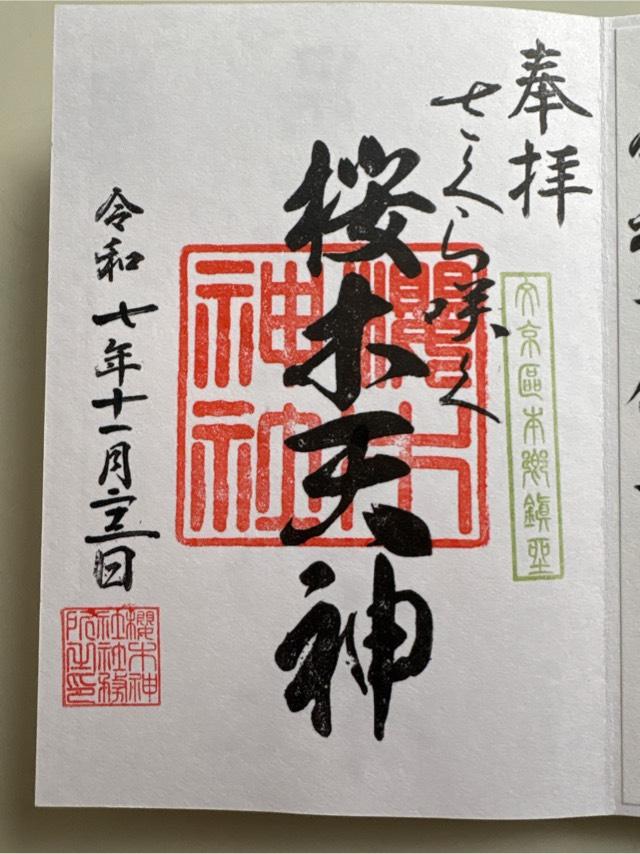 奉拝
さくら咲く
文京區本鄉鎮坐
桜木天神
櫻木
神社
令和七年十一月二三日
櫻木神
社社務
所之印